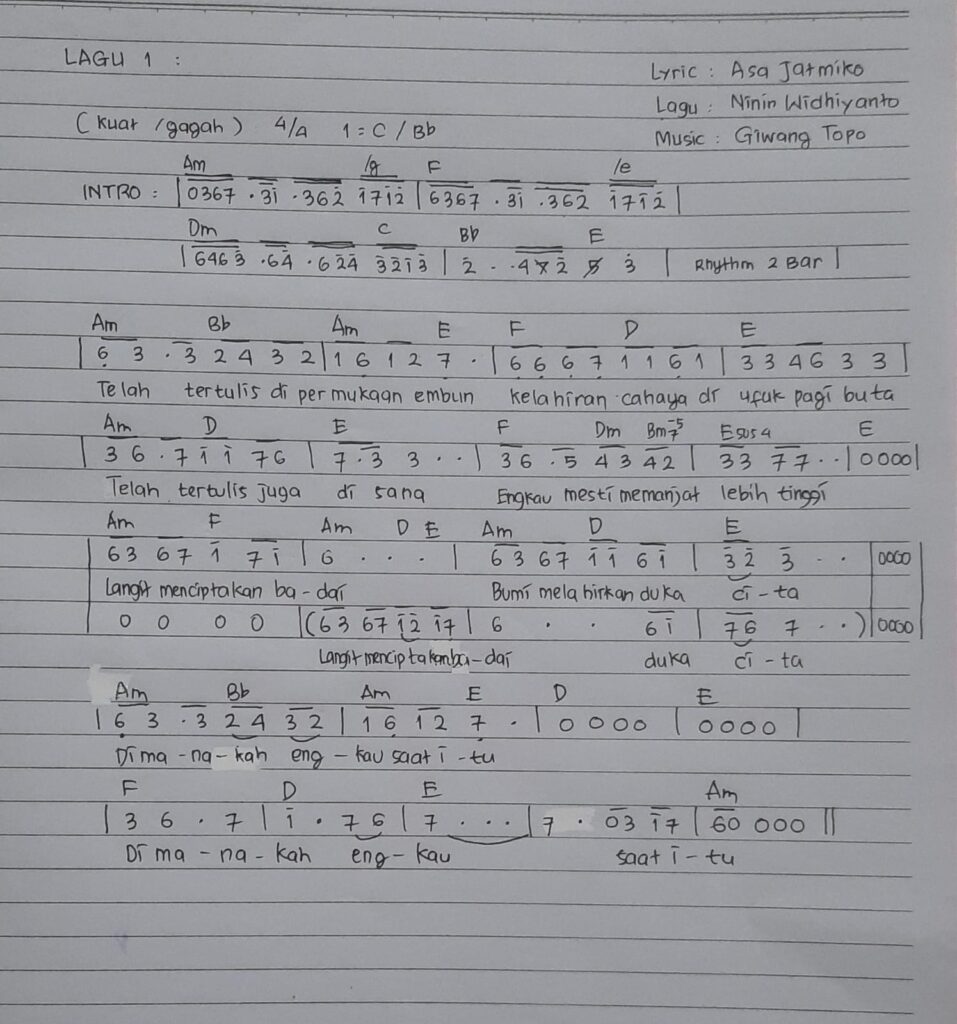 LAGU 1 :
Lyric : Asa Jatmiko
Lagu : Ninin Widhiyanto
(Kuat /gagah) 4/4 1 = C / Bb
Music : Giwang Topo
Am /g F /e
INTRO : | 0367 .3i .362̇ i̇7i̇2̇ | 6367 .3i .362̇ i̇7i̇2̇ |
Dm C Bb E
| 6463̇ .64̇ .62̇4̇ 3̇2̇i̇3̇ | 2̇ . . 4 2̇ 3̇ | Rhythm 2 Bar |
Am Bb Am E F D E
| 6̣ 3 . 3 2 4 3 2 | 1 6̣ 1 2 7̣ . | 6̣ 6̣ 6̣ 7̣ 1 1 6̣ 1 | 3 3 4 6 3 3 |
Telah tertulis di per mukaan embun kelahiran cahaya di ufuk pagi buta
Am D E F Dm Bm7⁻⁵ Esus4 E
| 3 6 . 7 i̇ i̇ 7 6 | 7 . 3 3 . . | 3 6 . 5 4 3 4 2 | 3 3 7 7 . . | 0 0 0 0 |
Telah tertulis juga di sana Engkau mesti memanjat lebih tinggi
Am F Am D E Am D E
| 6 3 6 7 i̇ 7 i̇ | 6 . . . | 6 3 6 7 i̇ i̇ 6 i̇ | 3̇ 2̇ 3 . . | 0000 |
Langit menciptakan ba - dai Bumi mela hirkan duka ci - ta
0 0 0 0 | ( 6 3 6 7 i̇ 2̇ i̇ 7 | 6 . . 6 i̇ | 7 6 7 . . ) | 0000 |
Langit menciptakan ba - dai duka ci - ta
Am Bb Am E D E
| 6̣ 3 . 3 2 4 3 2 | 1 6̣ 1 2 7̣ . | 0 0 0 0 | 0 0 0 0 |
Di ma - na - kah eng - kau saat i - tu
F D E Am
| 3 6 . 7 | i̇ . 7 6 | 7 . . . | 7 . 0 3 i̇ 7 | 6 0 0 0 0 ||
Di ma - na - kah eng - kau saat i - tu